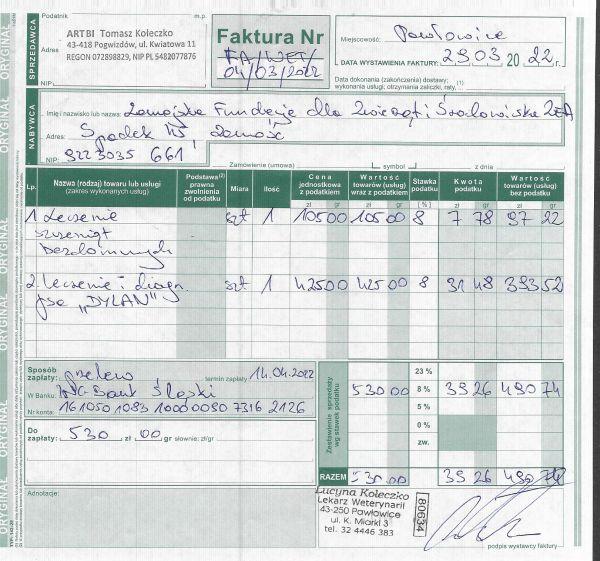 ORYGINAŁ
SPRZEDAWCA
Podatnik
m.p.
Adres
NIP
ARTBI Tomasz Kołeczko
43-418 Pogwizdów, ul. Kwiatowa 11
REGON 072898829, NIP PL 5482077876
Faktura Nr
FA/WET/
04/03/2022
Miejscowość: Pawłowice
DATA WYSTAWIENIA FAKTURY: 29.03 2022 r.
Data dokonania (zakończenia) dostawy;
wykonania usługi, otrzymania zaliczki, raty, (1)
NABYWCA
Imię i nazwisko lub nazwa: Zamojska Fundacja dla Zwierząt i Środowiska ZEA
Adres: Spadek 115, Zamość
NIP 9223035 661
Zamówienie (umowa)
symbol
z dnia
Lp.
Nazwa (rodzaj) towaru lub usługi
(zakres wykonanych usług)
Podstawa (2)
prawna
zwolnienia
od podatku
Miara
Ilość
Cena
jednostkowa
z podatkiem
zł gr
Wartość
towarów (usług)
wraz z podatkiem
zł gr
Stawka
podatku
[ % ]
Kwota
podatku
zł gr
Wartość
towarów (usług)
bez podatku
zł gr
1 Leczenie szt 1 105 00 105 00 8 7 78 97 22
szczeniąt
bezdomnych
2. leczenie i diagn. szt 1 425 00 425 00 8 31 48 393 52
psa „DYLAN”
Sposób
zapłaty: przelew termin zapłaty 14.04.2022
W Banku: ING Bank Śląski
Nr konta: 16 1050 1083 1000 0090 7316 2126
Do
zapłaty: 530 zł 00 gr słownie: zł/gr
Zestawienie sprzedaży
wg stawek podatku
23 %
530 00 8 % 39 26 490 74
5 %
0 %
zw.
RAZEM 530.00 39 26 490 74
Adnotacje:
Lucyna Kołeczko
Lekarz Weterynarii
43-250 Pawłowice
ul. K. Miarki 3
tel. 32 4446 383
80634
podpis wystawcy faktury